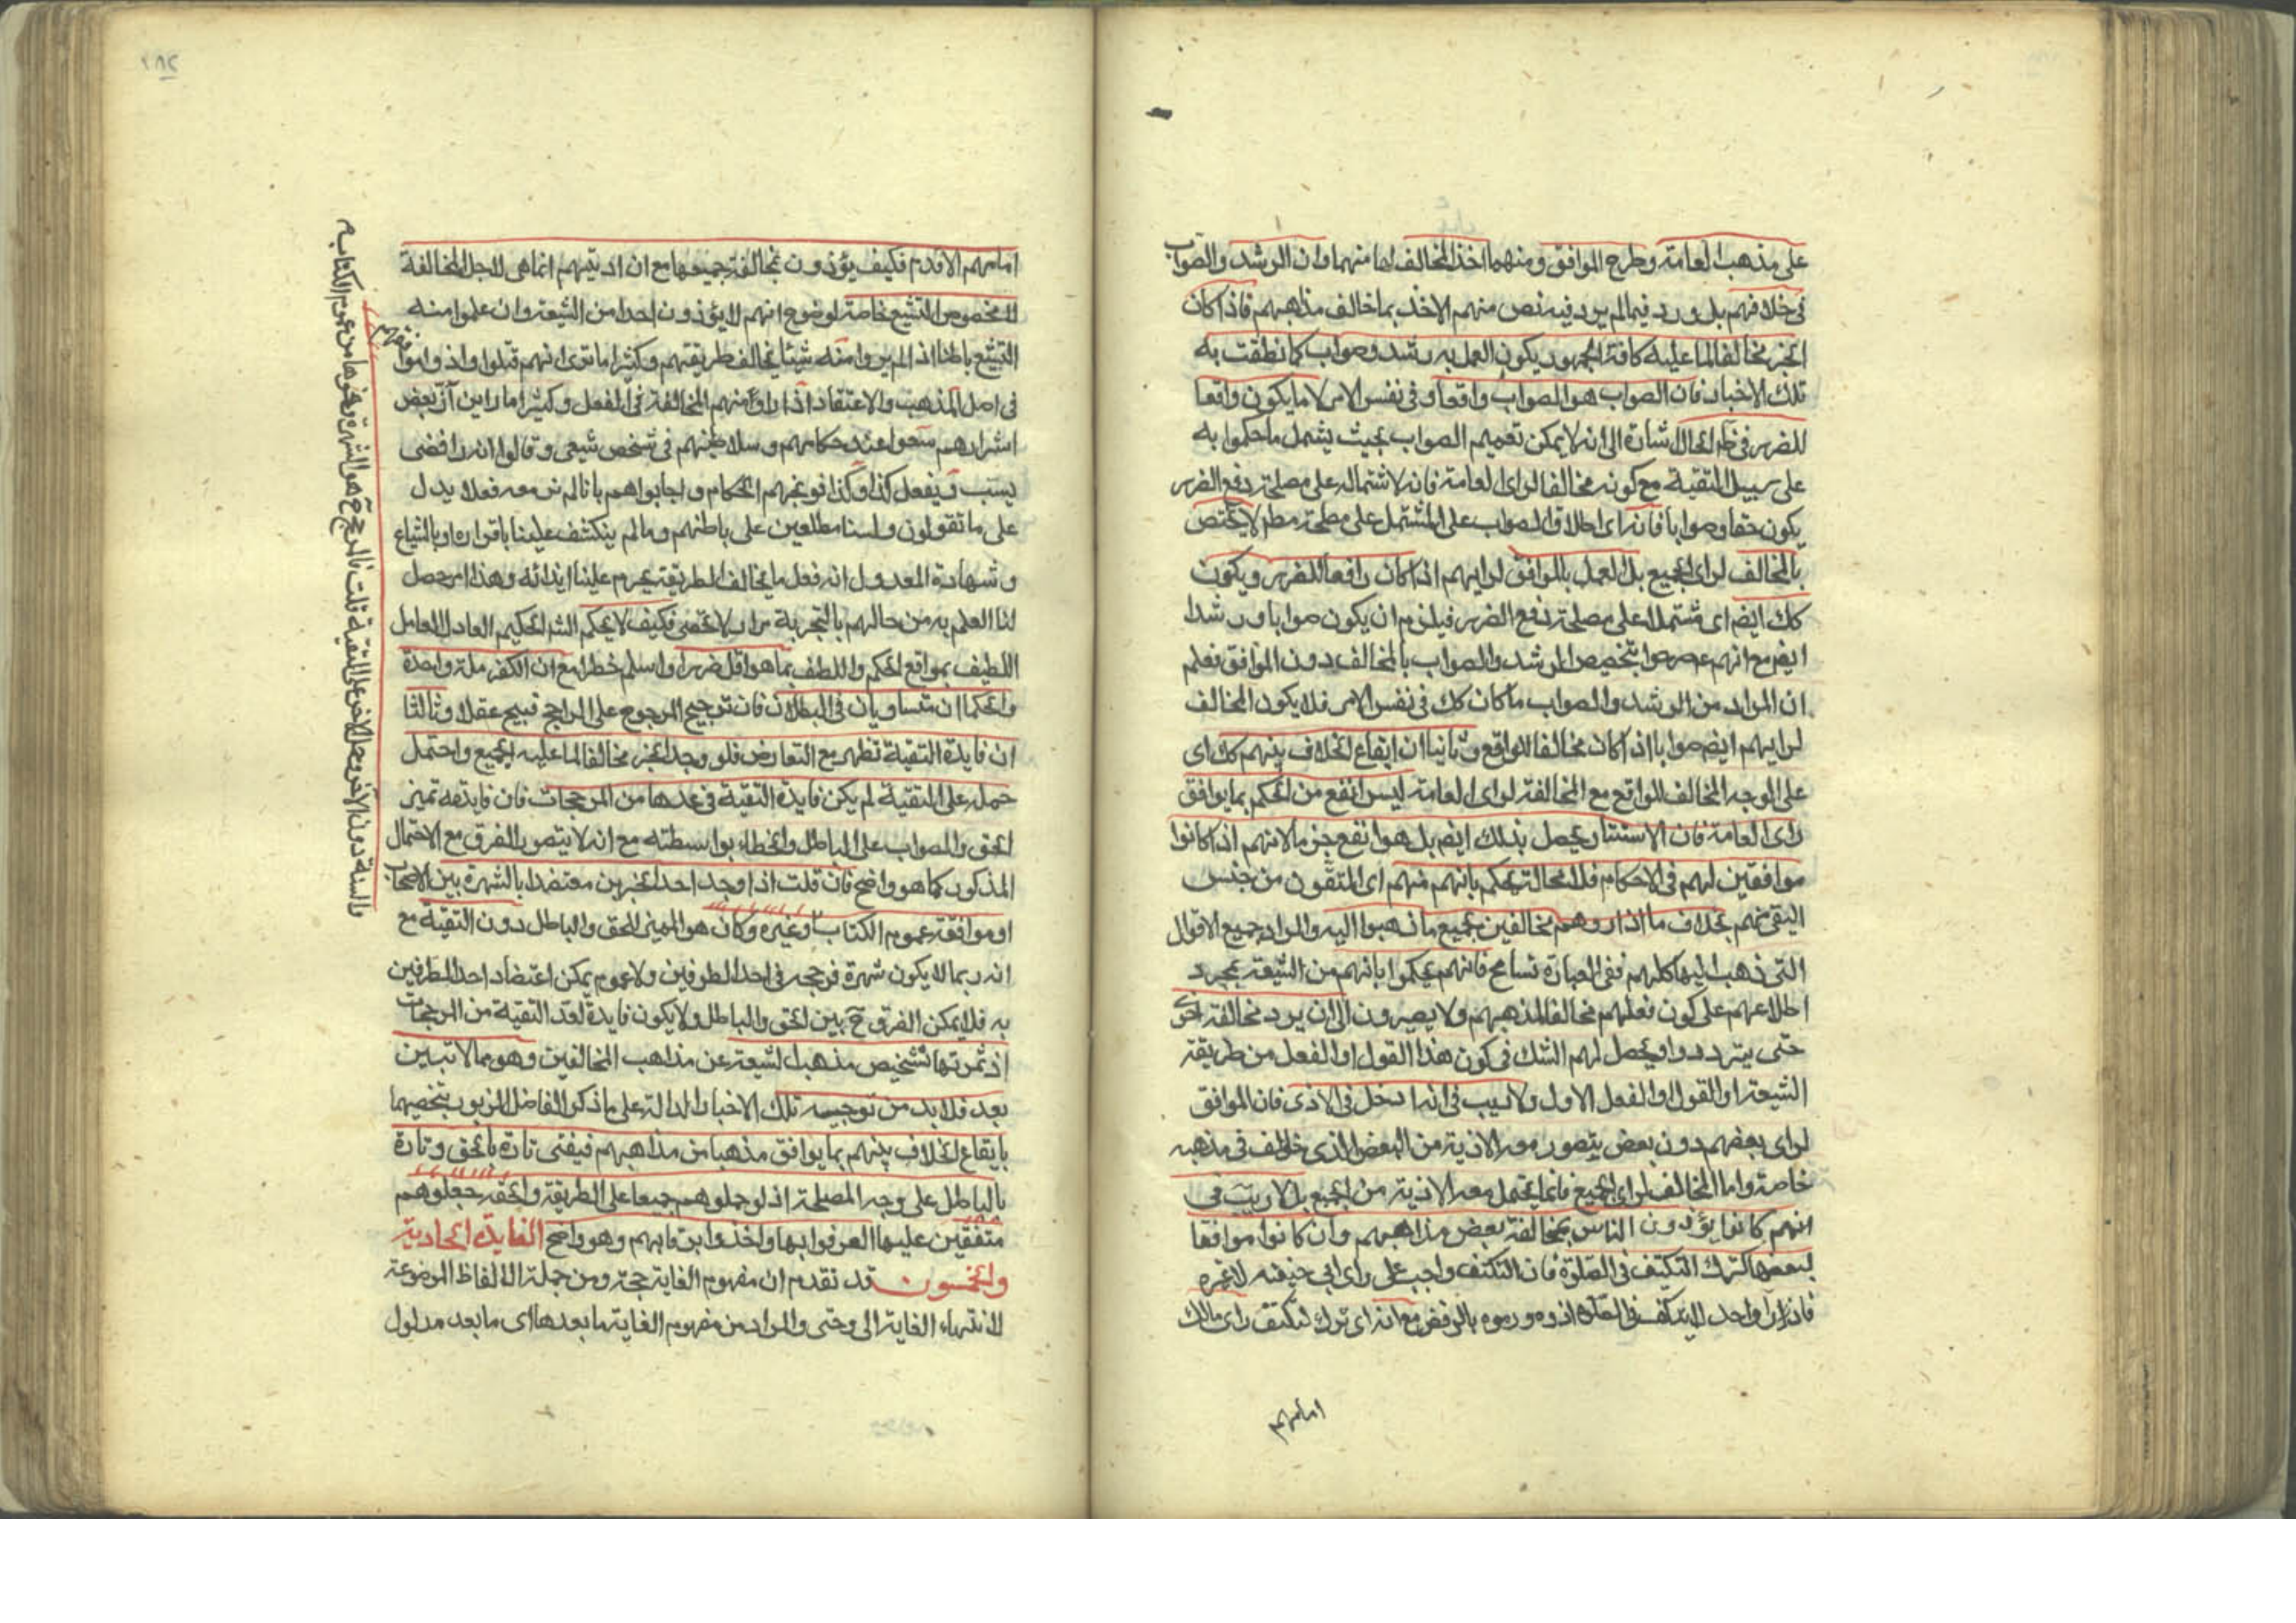 على مذهب العامة وطرح الموافق ومنهما اخذ المخالف لها منهما وان الرشد والصواب
فى خلافهم بل ورد فيما لم يرد فيه نص منهم الاخذ بما خالف مذاهبهم فاذا كان
الخبر مخالفا لما عليه كافة الجمهور يكون العمل به رشد وصواب كما نطقت به
تلك الاخبار فان الصواب هو الصواب واقعا وفى نفس الامر لا ما يكون واقعا
للضرر فى الحال اشارة الى انه لا يمكن تعميم الصواب بحيث يشمل ما حكموا به
على سبيل التقية مع كونه مخالفا لراى العامة فانه لاشتماله على مصلحة دفع الضرر
يكون حقا وصوابا فانه اى اطلاق الصواب على المشتمل على مصلحة مطم لا يختص
بالمخالف لراى الجميع بل العمل بالموافق لرايهم اذا كان رافعا للضرر ويكون
كك ايضم اى مشتملا على مصلحة دفع الضرر فيلزم ان يكون صوابا ورشدا
ايضم مع انهم صرحوا بتخصيص الرشد والصواب بالمخالف دون الموافق فعلم
ان المراد من الرشد والصواب ما كان كك فى نفس الامر فلا يكون المخالف
لرايهم ايضم صوابا اذا كان مخالفا للواقع وثانيا ان ايقاع الخلاف بينهم كك اى
على الوجه المخالف للواقع مع المخالفة لراى العامة ليس انفع من الحكم بما يوافق
راى العامة فان الاستتار يحصل بذلك ايضم بل هو انفع جزما لانهم اذا كانوا
موافقين لهم فى الاحكام فلا محالة يحكم بانهم منهم اى المتقون من جنس
التقى منهم بخلاف ما اذا راوهم مخالفين لجميع ما ذهبوا اليه والمراد جميع الاقوال
التى ذهب اليها كلهم ففى العبارة تسامح فانهم يحكموا بانهم من الشيعة بمجرد
اطلاعهم على كون فعلهم مخالفا لمذهبهم ولا يصبرون الى ان يرد مخالفة اخرى
حتى يترددوا ويحصل لهم الشك فى كون هذا القول او الفعل من طريقة
الشيعة او القول او الفعل الاول ولا ريب فى انه ادخل فى الاذى فان الموافق
لراى بعضهم دون بعض يتصور معه الاذية من البعض الذى خالف فى مذهبه
خاصة واما المخالف لراى الجميع فانما يحتمل معه الاذية من الجميع بل لا ريب فى
انهم كانوا يؤذون الناس بمخالفة بعض مذاهبهم وان كانوا موافقا
لبعضها كترك التكتف فى الصلوة فان التكتف واجب على راى ابى حنيفة لا غيره
فان راوا واحدا لا يتكتف فى الصلوة اذوه ورموه بالرفض مع انه اى ترك التكتف راى مالك
امامهم
امامهم الاقدم فكيف يؤذون بمخالفة جميعها مع ان اذيتهم انما هى لاجل المخالفة
لا لخصوص التشيع خاصة لوضوح انهم لا يؤذون احدا من الشيعة وان علموا منه
التشيع باطنا اذا لم يروا منه شيئا يخالف طريقتهم وكثيرا ما ترى انهم قتلوا واذوا موافقهم
فى اصل المذهب والاعتقاد اذا راوا منهم المخالفة فى الفعل وكثيرا ما راين ان بعض
اشرارهم سعوا عند حكامهم وسلاطينهم فى شخص شيعى وقالوا انه رافضى
يسب ويفعل كذا وكذا فوبخهم الحكام واجابوا هم بانا لم نر معه فعلا يدل
على ما تقولون ولسنا مطلعين على باطنهم وما لم ينكشف علينا باقراره او بالشياع
وشهادة العدول انه فعل ما يخالف الطريقة يحرم علينا ايذائه وهذا امر حصل
لنا العلم به من حالهم بالتجربة مرارا لا تحصى فكيف لا يحكم الشم الحكيم العادل العامل
اللطيف بمواقع الحكم واللطف بما هو اقل ضررا واسلم خطرا مع ان الكفر ملة واحدة
والحكمان متساويان فى البطلان فان ترجيح المرجوح على الراجح قبيح عقلا وثالثا
ان فايدة التقية تظهر مع التعارض فلو وجد الخبر مخالفا لما عليه الجميع واحتمل
حمله على التقية لم يكن فايدة التقية فى عدها من المرجحات فان فايدته تميز
الحق والصواب على الباطل والخطاء بواسطته مع انه لا يتصور الفرق مع الاحتمال
المذكور كما هو واضح فان قلت اذا وجد احد الخبرين معتضدا بالشهرة بين الاصحاب
او موافقة عموم الكتاب او غيره وكان هو المميز للحق والباطل دون التقية مع
انه ربما لا يكون شهرة فرجحه فى احد الطرفين ولا عموم يمكن اعتضاد احد الطرفين
به فلا يمكن الفرق ح بين الحق والباطل ولا يكون فايدة لعد التقية من المرجحات
اذ ثمرتها تشخيص مذهب الشيعة عن مذاهب المخالفين وهو مما لا تبين
بعد فلا بد من توجيه تلك الاخبار الدالة على ما ذكر الفاضل المزبور بتخصيصها
بايقاع الخلاف بينهم بما يوافق مذهبا من مذاهبهم فيفتى تارة بالحق وتارة
بالباطل على وجه المصلحة اذ لو حملوهم جميعا على الطريقة والحقة جعلوهم
متفقين عليها العرفوا بها واخذوا برقابهم وهو واضح الفايدة الحادية
والخمسون قد تقدم ان مفهوم الغاية حجة ومن جملة الالفاظ الموضوعة
لانتهاء الغاية الى وحتى والمراد من مفهوم الغاية ما بعدها اى ما بعد مدلول
والسنة دون الاخر وحمل الاخر على التقية قلت فالمرجح ح هو الشهرة ونحوها من عموم الكتاب م